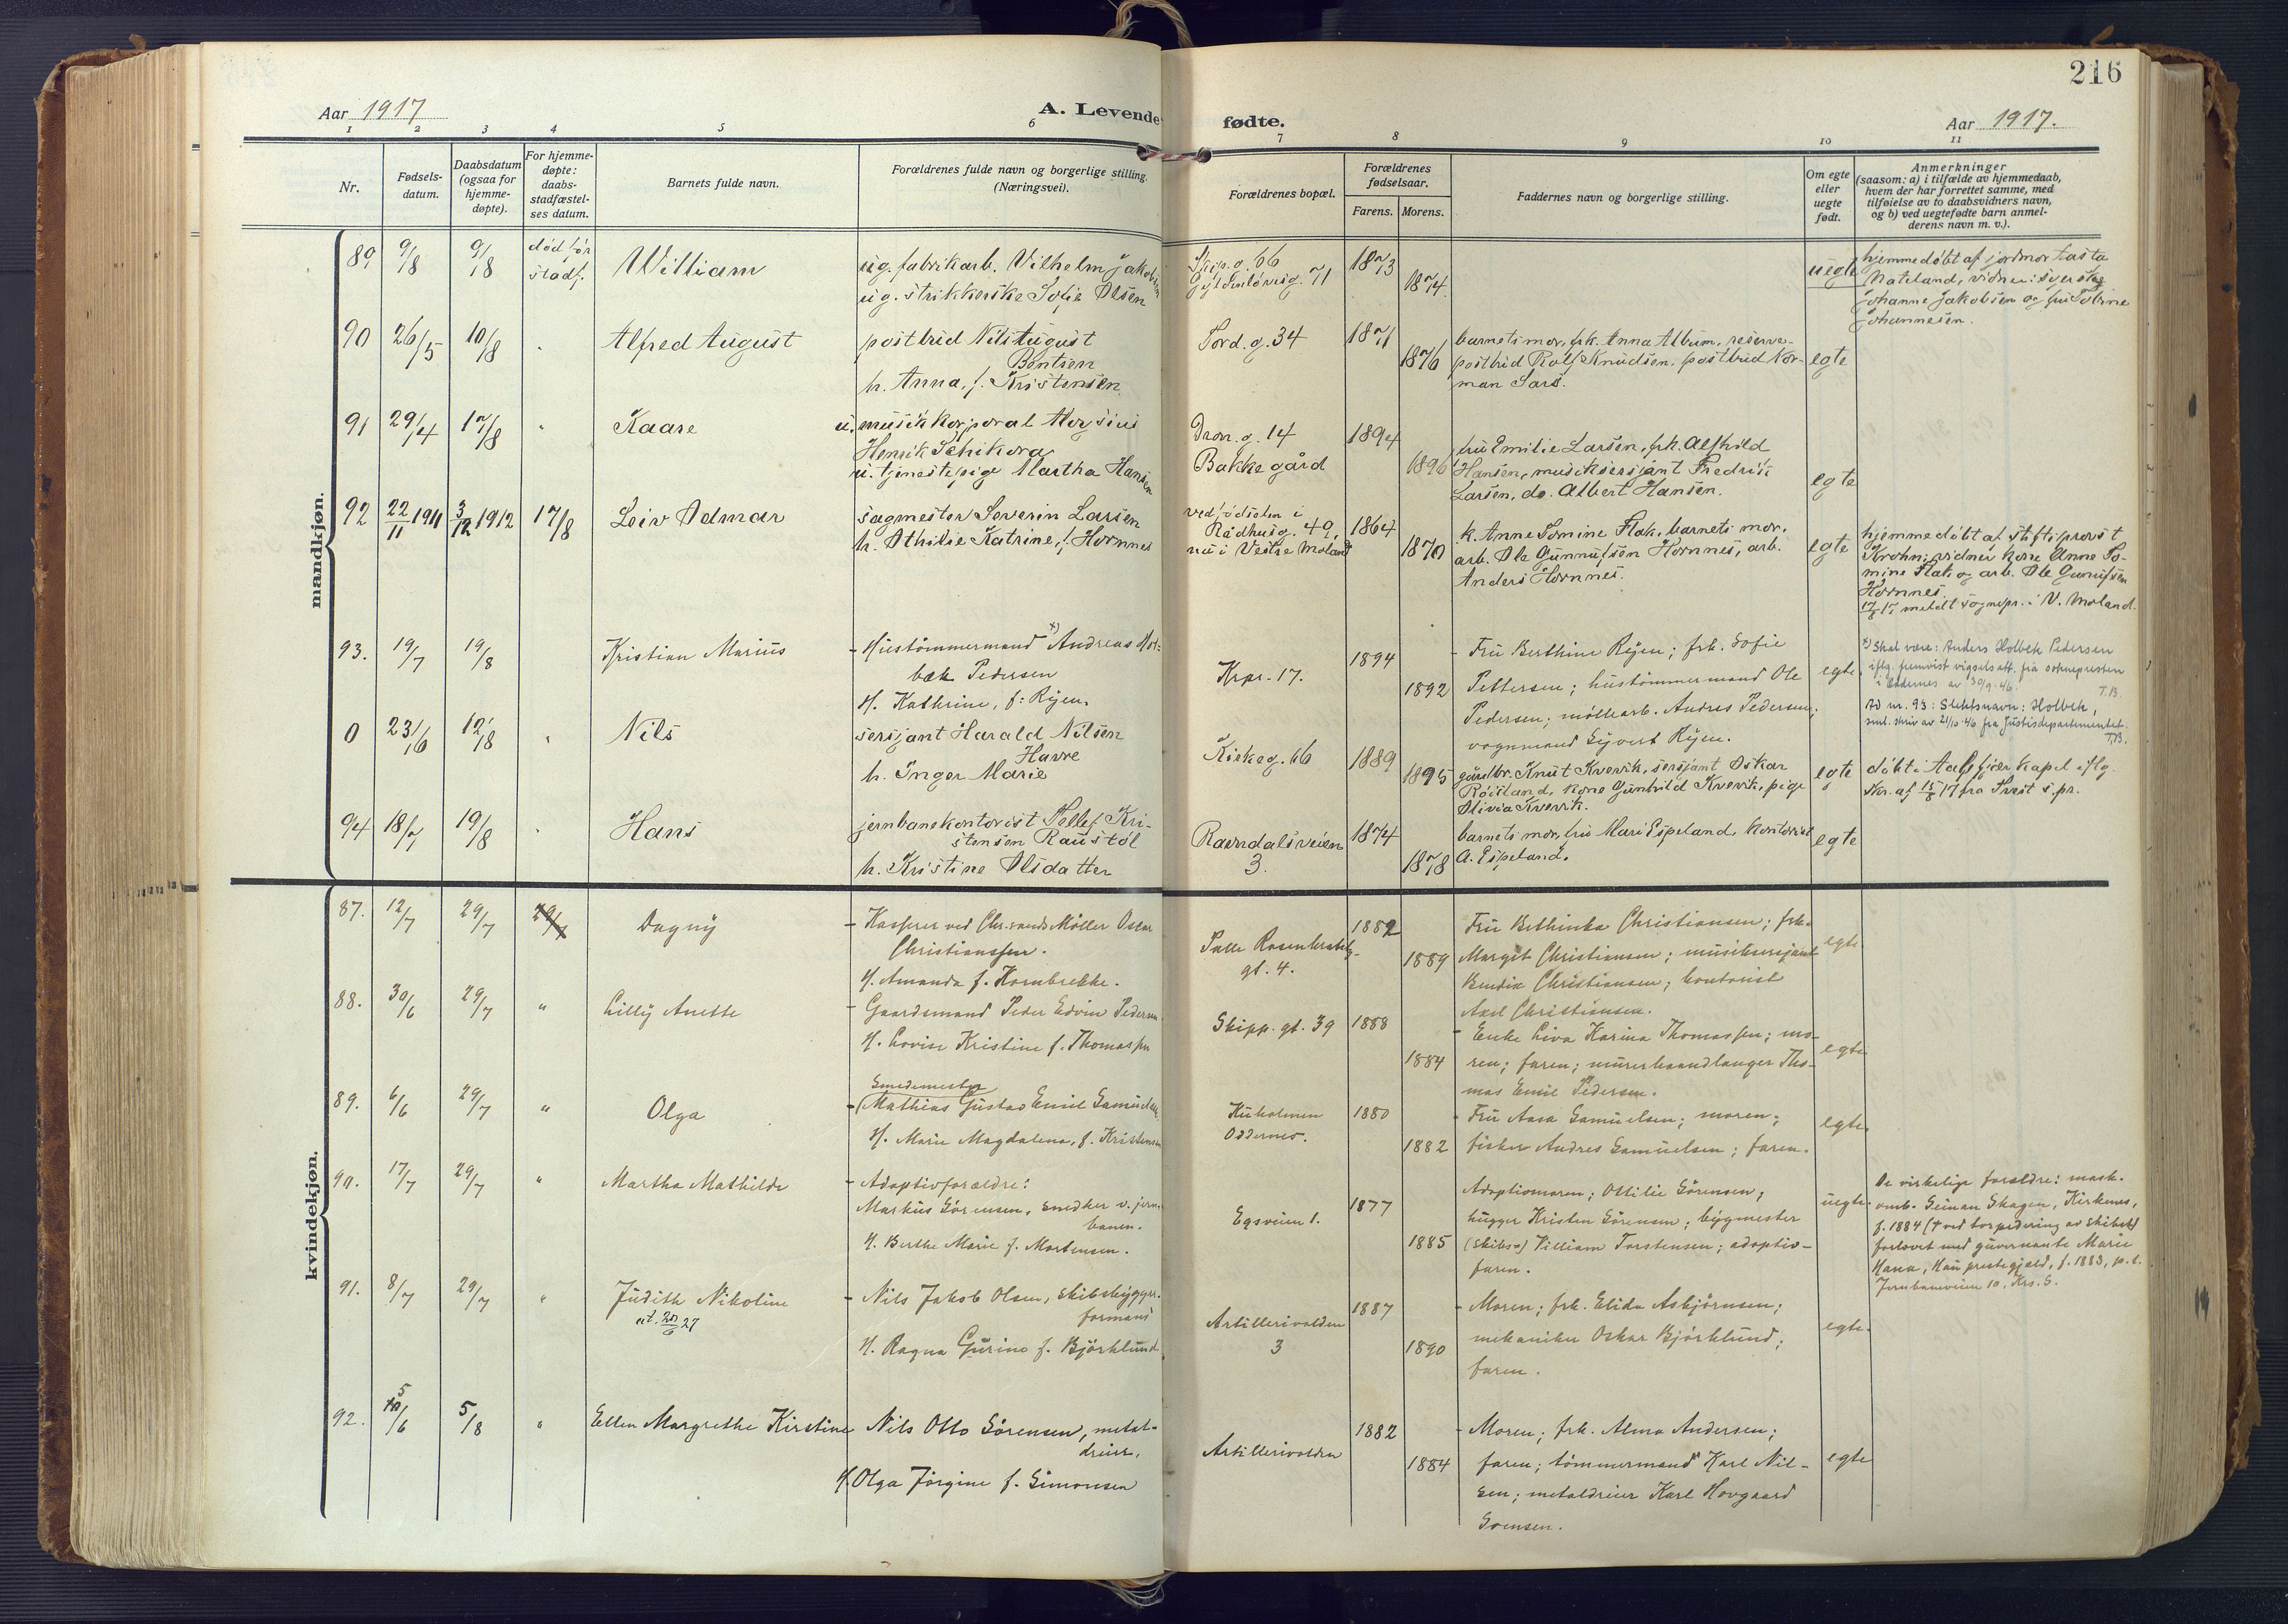 216
Aar 1917
A. Levende fødte.
Aar 1917.
1 2 3 4 5 6 7 8 9 10 11
Nr.
Fødsels-
datum.
Daabsdatum
(ogsaa for
hjemme-
døpte).
For hjemme-
døpte:
daabs-
stadfæstel-
ses datum.
Barnets fulde navn.
Forældrenes fulde navn og borgerlige stilling.
(Næringsvei).
Forældrenes bopæl.
Forældrenes
fødselsaar.
Farens. Morens.
Faddernes navn og borgerlige stilling.
Om egte
eller
uegte
født.
Anmerkninger
(saasom: a) i tilfælde av hjemmedaab,
hvem der har forrettet samme, med
tilføielse av to daabsvidners navn,
og b) ved uegtefødte barn anmel-
derens navn m. v.).
mandkjøn.
89 9/8 9/8 død før
stadf.
William
ug. fabrikarb. Vilhelm Jakobsen
ug. strikkerske Sofie Olsen
Skip.g. 66
Gyldenløvesg. 71
1873
1874
uegte
hjemmedøbt af jordmor Tasta
Nateland, vidner: syerske
Johanne Jakobsen og fru Tobine
Johannesen.
90 26/5 10/8
Alfred August
postbud Nils August
Bentsen
h. Anna, f. Kristensen
Tord.g. 34
1871
1876
barnets mor, frk. Anna Album, reserve-
postbud Rolf Knudsen. postbud Nor-
man Sars.
egte
91 29/4 17/8 "
Kaare
u. musikkorporal Aloysius
Henrik Schikora
u. tjenestepige Martha Hansen
Dron.g. 14
Bakkegård
1894
1896
fru Emilie Larsen, frk. Alfhild
Hansen, musiksersjant Fredrik
Larsen, do. Albert Hansen.
egte
92 22/11 1911 3/12 1912 17/8
Leiv Odmar
sagmester Severin Larsen
h. Othilie Katrine, f. Hornnes
ved fødselen i
Rådhusg. 49,
nu i Vestre Moland
1864
1870
k. Anne Tomine Flak, barnets mor.
arb. Ole Gunnufsen Hornnes, arb.
Anders Hornnes.
egte
hjemmedøbt af stiftsprovst
Krohn; vidner kone Anne To-
mine Flak og arb. Ole Gunnufsen
Hornnes.
17/8 17 meldt sognepr. i V. Moland.
93. 19/7 19/8
Kristian Marius
- Hustømmermand x) Andreas Hol-
bæk Pedersen
H. Kathrine, f: Ryen.
Krpr. 17.
1894
1892
- Fru Berthine Ryen; frk. Sofie
Pettersen; hustømmermand Ole
Pedersen; møllearb. Andres Pedersen;
vognmand Syvert Ryen.
egte
x) Skal være: Anders Holbek Pedersen
iflg. fremvist vigselsatt. fra soknepresten
i Oddernes av 30/9-46. T.B.
Ad nr. 93: Slektsnavn: Holbek,
sml. skriv av 21/10-46 fra Justisdepartementet.
T.B.
0 23/6 12/8 "
Nils
sersjant Harald Nilsen
Havre
h. Inger Marie
Kirkeg. 66
1889
1895
gårdbr. Knut Kvevik, sersjant Oskar
Røisland, kone Gunhild Kvevik, pige
Olivia Kvevik.
egte
døbt i Aalefjær kapel iflg.
skr. af 15/8 17 fra Tveit s.pr.
94 18/7 19/8 "
Hans
jernbanekontorist Tellef Kri-
stensen Raustøl
h. Kristine Olsdatter
Ravndalsveien
3.
1874
1878
barnets mor, fru Mari Espeland, kontorist
A. Espeland.
egte
kvindekjøn.
87. 12/7 29/7 29/7
Dagny
- Kasserer ved Chr.sands Møller Oscar
Christianssen.
H. Amanda f. Hornbrekke.
Palle Rosenkrantz
gt. 4.
1882
1889
Fru Bethinka Christiansen; frk.
Margit Christiansen; musiksersjant
Bendix Christiansen; kontorist
Axel Christiansen.
egte
88. 30/6 29/7 "
Lilly Anette
- Gaardsmand Peder Edvin Pedersen
H. Lovise Kristine f. Thomassen
Skipp. gt. 39
1888
1884
- Enke Liva Karina Thomassen; mo-
ren; faren; murerhaandlanger Tho-
mas Emil Pedersen.
egte
89. 6/6 29/7 "
Olga
Smedemester
- Mathias Gustav Emil Samuelsen
H. Marie Magdalena, f. Kristensen
Kuholmen
Oddernes.
1880
1882
- Fru Aasa Samuelsen; moren;
fisker Andres Samuelsen; faren.
egte.
90. 17/7 29/7 "
Martha Mathilde
- Adoptivforældre:
Markus Sørensen, snedker v. jern-
banen.
H. Berthe Marie f. Mortensen.
Egsveien 1.
1877
1885
Adoptivmoren; Ottilie Sørensen;
hugger Kristen Sørensen; bygmester
(skibs-) William Torstensen; adoptiv-
faren.
uegte.
De virkelige forældre: mask.
omb. Skagen, Kirkenes,
f. 1884 († ved torpedering av skibet)
forlovet med guvernante Marie
prestegjeld, f. 1883, p.t.
Jernbaneveien 10, Krs.S.
91. 8/7 29/7 "
Judith Nikoline
at. 20/6 27
- Nils Jakob Olsen, skibsbygger-
formand
H. Ragna Gurine f. Björklund
Artillerivolden
3
1887
1890
- Moren; frk. Elida Asbjørnsen;
mekaniker Oskar Björklund;
faren.
egte.
92. 5/6 5/8 "
Ellen Margrethe Kirstine
Nils Otto Sørensen, metal-
dreier,
H. Olga Jørgine f. Simonsen
Artillerivolden
1882
1884
- Moren; frk. Alma Andersen;
faren; tømmermand Karl Nil-
sen; metaldreier Karl Hovgaard
Sørensen.
egte